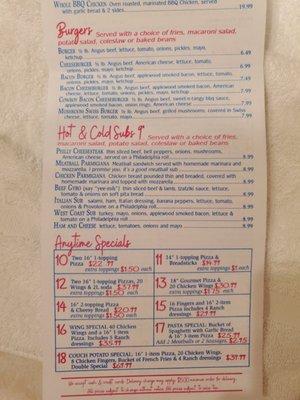 WHOLE BBQ CHICKEN oven roasted, marinated BBQ Chicken, served
with garlic bread & 2 sides 19.99
Burgers Served with a choice of fries, macaroni salad,
potato salad, coleslaw or baked beans
BURGER ½ lb. Angus beef, lettuce, tomato, onions, pickles, mayo,
ketchup 6.49
CHEESEBURGER ½ lb. Angus beef, American cheese, lettuce, tomato,
onions, pickles, mayo, ketchup 6.99
BACON BURGER ½ lb. Angus beef, applewood smoked bacon, lettuce, tomato,
onions, pickles, mayo, ketchup 7.49
BACON CHEESEBURGER ½ lb. Angus beef, applewood smoked bacon, American
cheese, lettuce, tomato, onions, pickles, mayo, ketchup 7.99
COWBOY BACON CHEESEBURGER ½ lb. Angus beef, sweet-n-tangy BBQ sauce,
applewood smoked bacon, onion rings, American cheese 7.99
MUSHROOM SWISS BURGER ½ lb. Angus beef, grilled mushrooms, covered in Swiss
cheese, lettuce, tomato, mayo 7.99
Hot & Cold Subs 9" Served with a choice of fries,
macaroni salad, potato salad, coleslaw or baked beans
PHILLY CHEESESTEAK thin sliced beef, bell peppers, onions, mushrooms,
American cheese, served on a Philadelphia roll 8.99
MEATBALL PARMIGIANA Meatball sandwich served with homemade marinara
and mozzarella. I promise you, it's a good meatball sub 8.99
CHICKEN PARMIGIANA Chicken breast pounded thin and breaded, covered with
homemade marinara and topped with mozzarella 8.99
BEEF GYRO (say "yee-rols") thin sliced beef & lamb, tzatziki sauce, lettuce,
tomato & onions on soft pita bread 8.99
ITALIAN SUB salami, ham, Italian dressing, banana peppers, lettuce, tomato,
onions & Provolone on a Philadelphia roll 8.99
WEST COAST SUB turkey, mayo, onions, applewood smoked bacon, lettuce &
tomato on a Philadelphia roll 8.99
HAM AND CHEESE lettuce, tomatoes, onions and mayo 8.99
Anytime Specials
10 Two 16" 1-topping
Pizza $22.99
extra toppings $1.50 each
11 14" 1-topping Pizza &
Breadsticks $14.99
extra toppings $1 each
12 Two 16" 1-topping Pizzas, 20
Wings & 2L soda $37.99
extra toppings $1.50 each
13 18" Gourmet Pizza &
20 Chicken Wings $30.99
extra toppings $1.75 each
14 16" 2-topping Pizza
& Cheesy Bread $20.99
extra toppings $1.50 each
15 16 Fingers and 16" 2-item
Pizza includes 4 Ranch
dressings $29.99
16 WING SPECIAL 40 Chicken
Wings and a 16" 1-item
Pizza. Includes 5 Ranch
dressings $35.99
17 PASTA SPECIAL: Bucket of
Spaghetti with Garlic Bread
& 16" 3-item Pizza $25.99
Add 2 Meatballs or 2 Sausages $2.95
18 COUCH POTATO SPECIAL, 16" 1-item Pizza, 20 Chicken Wings,
8 Chicken Fingers, Bucket of French Fries & 4 Ranch dressings $37.99
Double Special $67.99
We accept cash & credit cards. Delivery charge may apply. $15.00 minimum order for delivery.